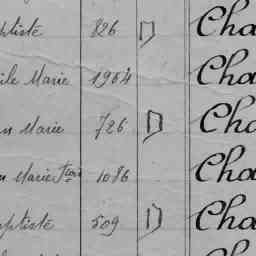 ptiste 826 D Cha
ile Marie 1964 Cha
n Marie 726 D Cha
Marie 1086 Cha
aptiste 509 D Cha